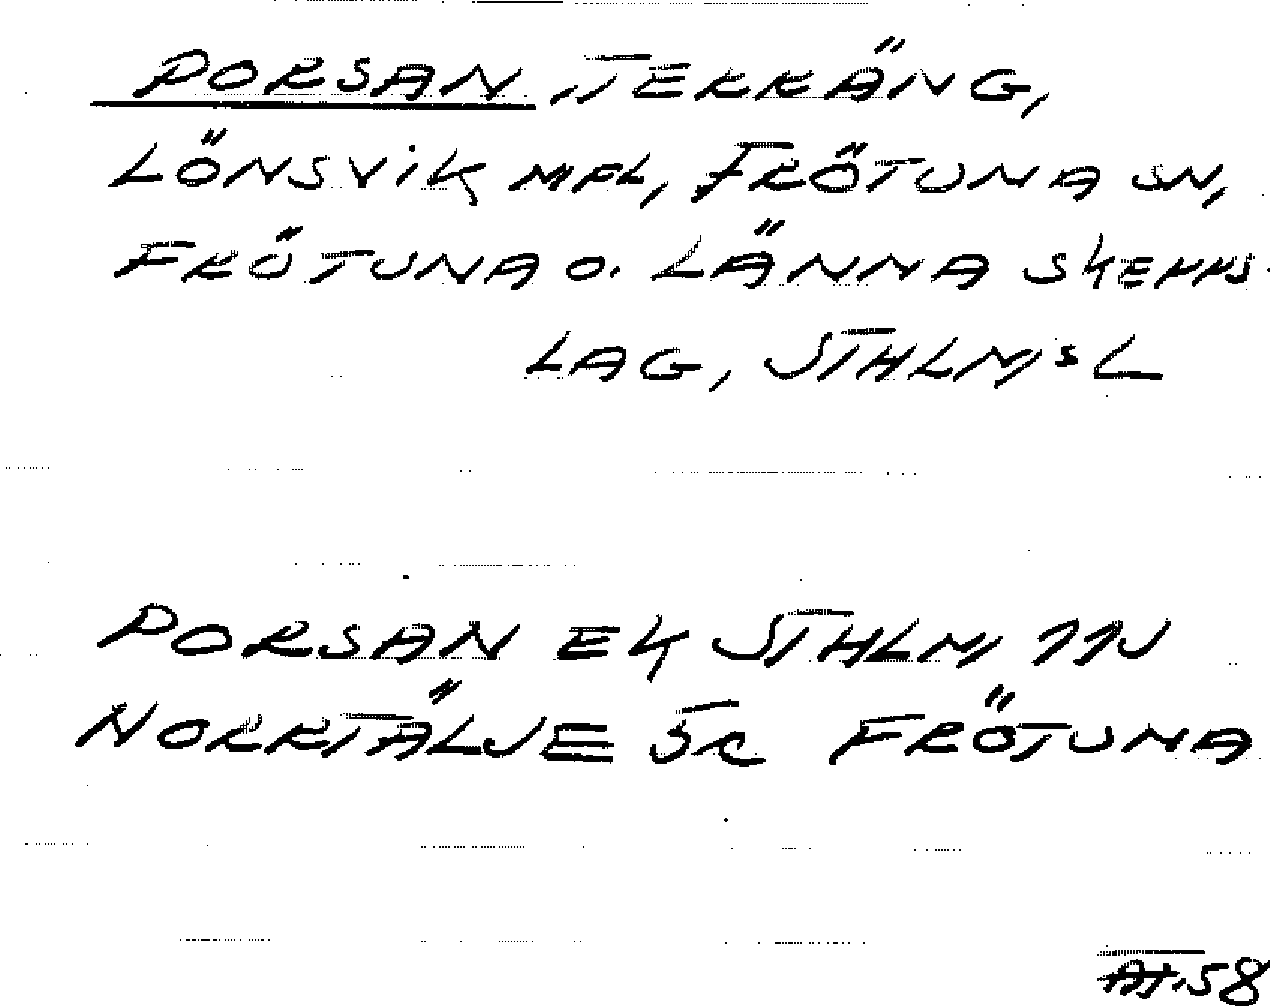 PORSAN, TERRÄNG,
LÖNSVIK MFL, FRÖTUNA SN,
FRÖTUNA O. LÄNNA SKEPPS-
LAG, STHLMS L
PORSAN EK STHLM 11J
NORRTÄLJE 5c FRÖTUNA
58